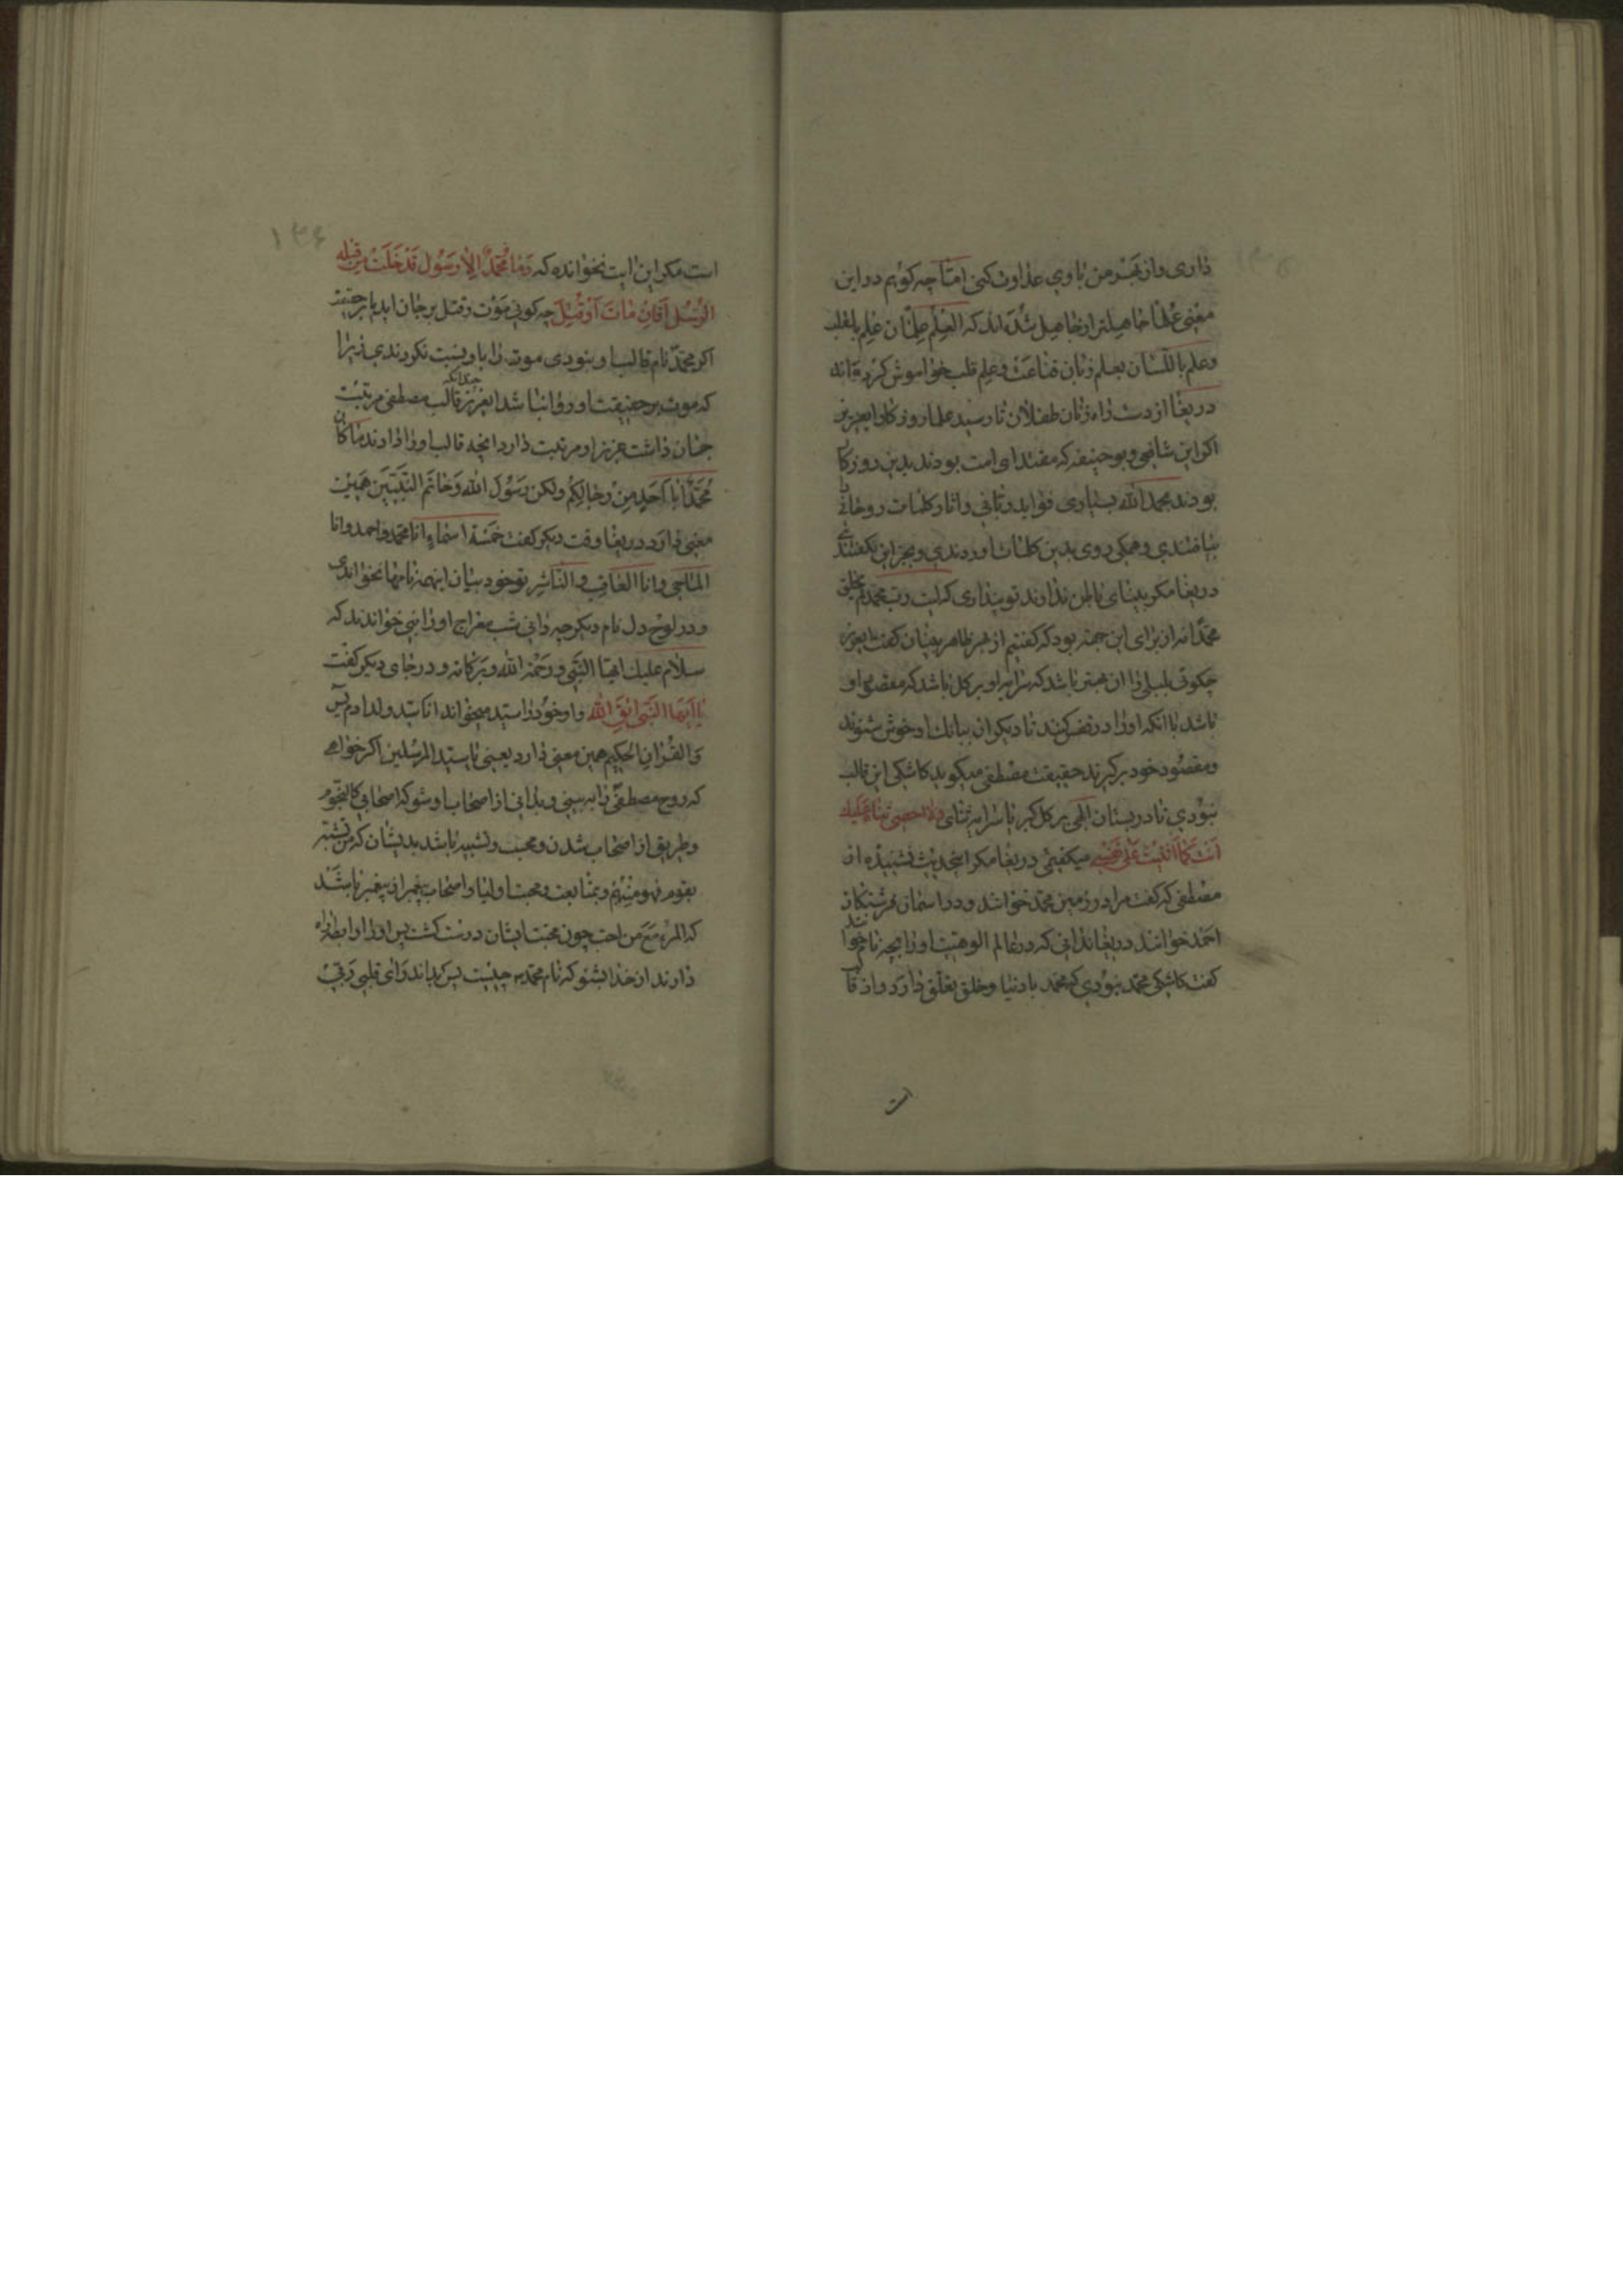 داری و از بهر من با وی عداوت کنی امتا چه کویم در این
معنی علما جاهلتر از جاهل شده اند که العلم علمان علم بالقلب
وعلم باللسان بعلم زبان قناعت وعلم قلب فراموش کرده اند
دریغا از دست راه زنان طفلان تا رسید علما روزکار ای عزیز
اکر این شافعی و بوحنیفه که مقتدای امت بودند بدین روزکار
بودند بحمد الله بسیاری فواید ربانی و اثار کلمات روحانی
بیافتندی و همکی روی بدین کلمات اوردندی و بجز این نکفتندی
دریغا مکر بینای باطن ندارند تو پنداری که لیت رب محمد لم یخلق
محمدا نه از برای این جمله بود که کفتیم از بهر ظاهر بینان کفت ای عزیز
چکوئی بلبلی را ان بهتر باشد که سرایه او بر کل باشد که مقصود او
باشد یا انکه اورا در قفس کنند تا دیکران ببانک او خوش شنوند
ومقصود خود برکیرند حقیقت مصطفی میکوید کاشکی این قالب
نبودی تا در بستان الهی بر کل کبریا سرایه ثنای ولا احصی ثناء علیک
انت کما اثنیت علی نفسک میکفتمی دریغا مکر این حدیث نشنیده از
مصطفی که کفت مرا در زمین محمد خوانند و در اسمان فرشتکان
احمد خوانند دریغا ندانی که در عالم الوهیت اورا بچه نام خوانند
کفت کاشکی محمد نبودی که محمد با دنیا و خلق تعلق دارد و از قا
است
۱۳۶
است مکر این ایت نخوانده که وما محمد الا رسول قد خلت من قبله
الرسل افان مات او قتل چه کوئی موت وقتل بر جان اید یا بر حقیقت
اکر محمد نام قالب او بنودی موت را با او نسبت نکردندی زیرا
که موت بر حقیقت او روا نباشد ای عزیز چنانکه قالب مصطفی مرتبت
جان داشت عزیز او مرتبت دارد انچه قالب اورا دادند ما کان
محمد ابا احد من رجالکم ولکن رسول الله وخاتم النبیین همین
معنی دارد دریغا وقت دیکر کفت خمسة اسماء انا محمد واحمد وانا
الماحی وانا العاقب والناشر تو خود بیان اینهمه نامها نخواندی
و در لوح دل نام دیکر چه دانی شب معراج اورا نبی خواندند که
سلام علیک ایها النبی ورحمة الله وبرکاته و در جای دیکر کفت
یا ایها النبی اتق الله و او خود را سید میخواند انا سید ولد ادم یس
والقران الحکیم همین معنی دارد یعنی یا سید المرسلین اکر خواهی
که روح مصطفی را به بینی و بدانی از اصحاب او شو که اصحابی کالنجوم
وطریق از اصحاب شدن ومحب وتشبیه باشد بدیشان که من تشبه
بقوم فهو منهم وبمتابعت ومحبت اولیا و اصحاب پیغمبر از پیغمبر باشد
که المرء مع من احب چون محبت ایشان درست کشت پس اورا او را بطراه
دارند از خدا بشنو که نام محمد چیست پس بداند رای قلبی ربی